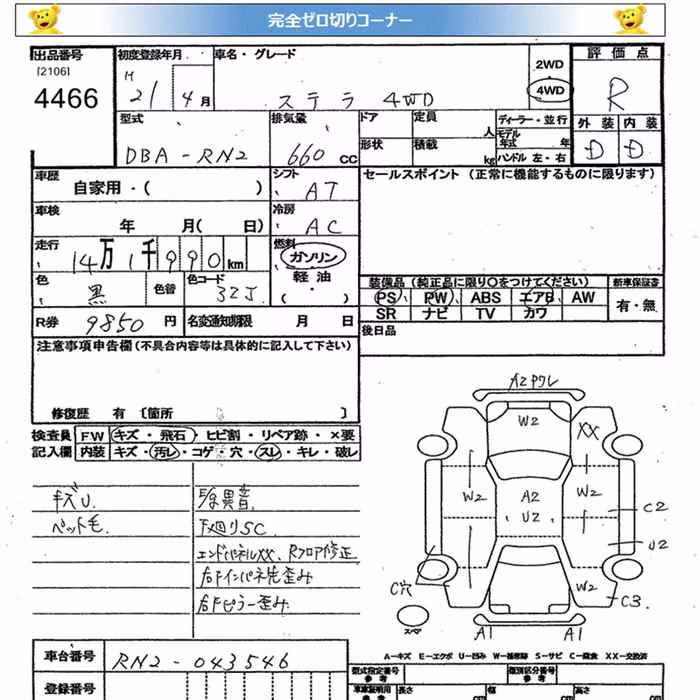 完全ゼロ切りコーナー
出品番号 初度登録年月 車名・グレード 2WD 評価点
[2106] H 21 4月 ステラ 4WD 4WD R
4466 外装 内装
型式 排気量 ドア 定員 人 ディーラー・並行 D D
DBA-RN2 660 CC 形状 積載 kg モデル年式 年
ハンドル 左・右
車歴 自家用・( ) シフト AT セールスポイント (正常に機能するものに限ります)
車検 年 月( 日) 冷房 AC
走行 14万1千990km 燃料 ガソリン
軽油
( ・ )
色 黒 色替 色コード 32J 装備品 (純正品に限り○をつけてください) 新車保証書
PS PW ABS エアB AW 有・無
R券 9850円 名変通知期限 月 日 SR ナビ TV カワ
注意事項申告欄 (不具合内容等は具体的に記入して下さい) 後日品
修復歴 有 [箇所 ]
検査員 FW キズ・飛石・ヒビ割・リペア跡・×要
記入欄 内装 キズ・汚レ・コゲ・穴・スレ・キレ・破レ
キズU.
ペット毛.
異音
下廻りSC
エンドパネルXX、Rフロア修正
右下インパネ先歪み
右Fピラー歪み
A2ワレ
W2
XX
W2 A2 W2 C2
U2 U2
C穴 W2 C3
スペア A1 A1
A－キズ E－エクボ U－凹み W－補修跡 S－サビ C－腐食 XX－交換済
車台番号 RN2-043546 型式指定番号 類別区分番号
登録番号 参考 参考
車庫証明用 参考 長さ cm 幅 cm 高さ cm